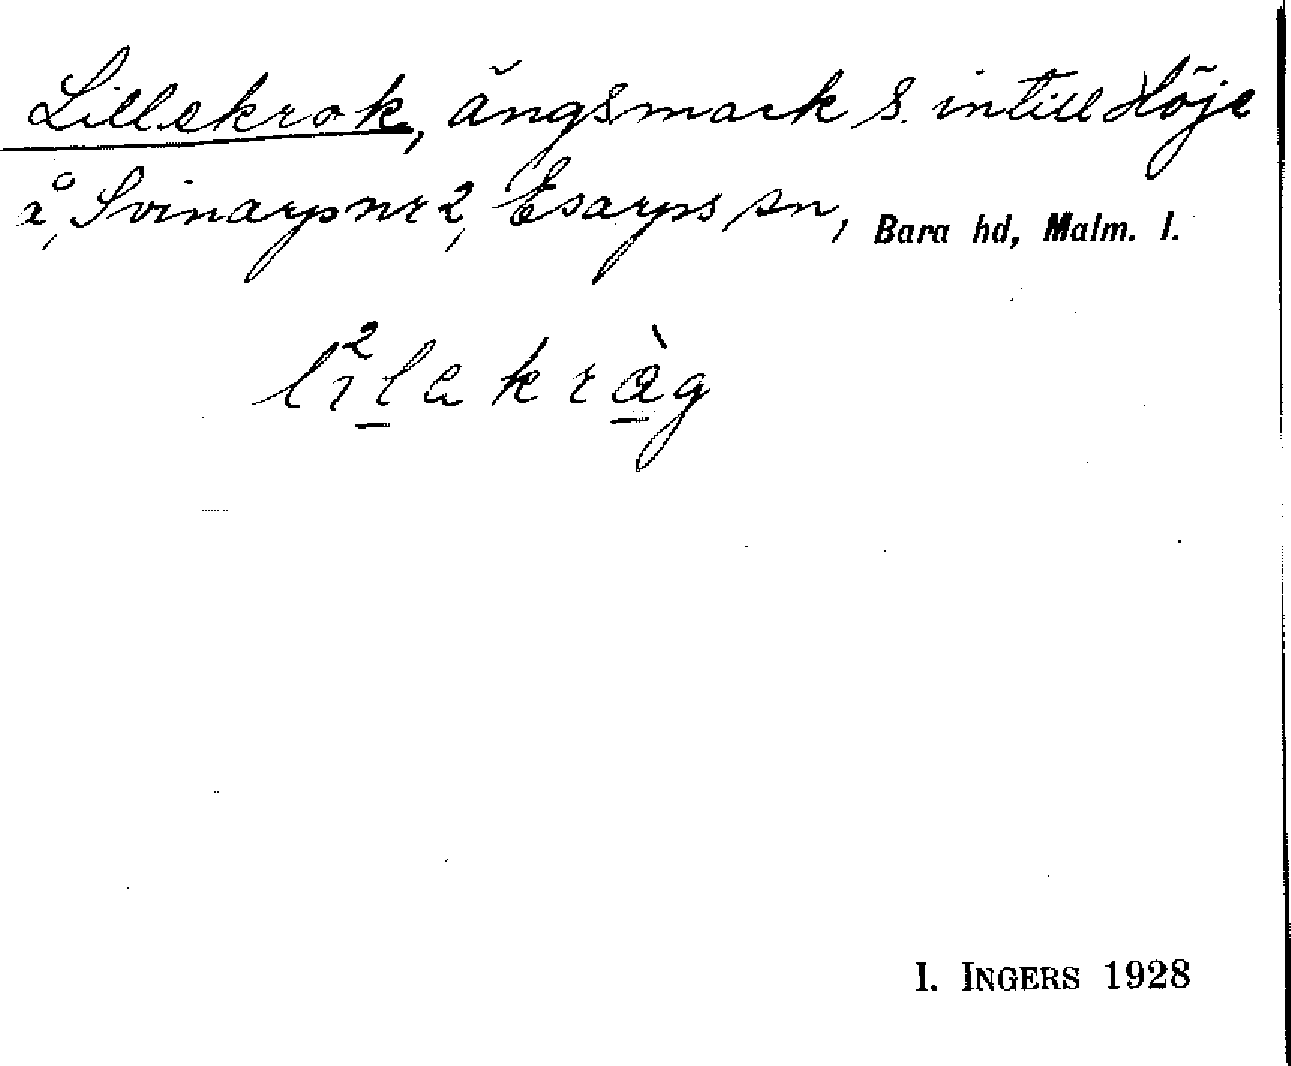 Lillekrok, ängsmark S. intill Höje
å, Svinarp nr 2, Esarps sn, Bara hd, Malm. l.
I. INGERS 1928